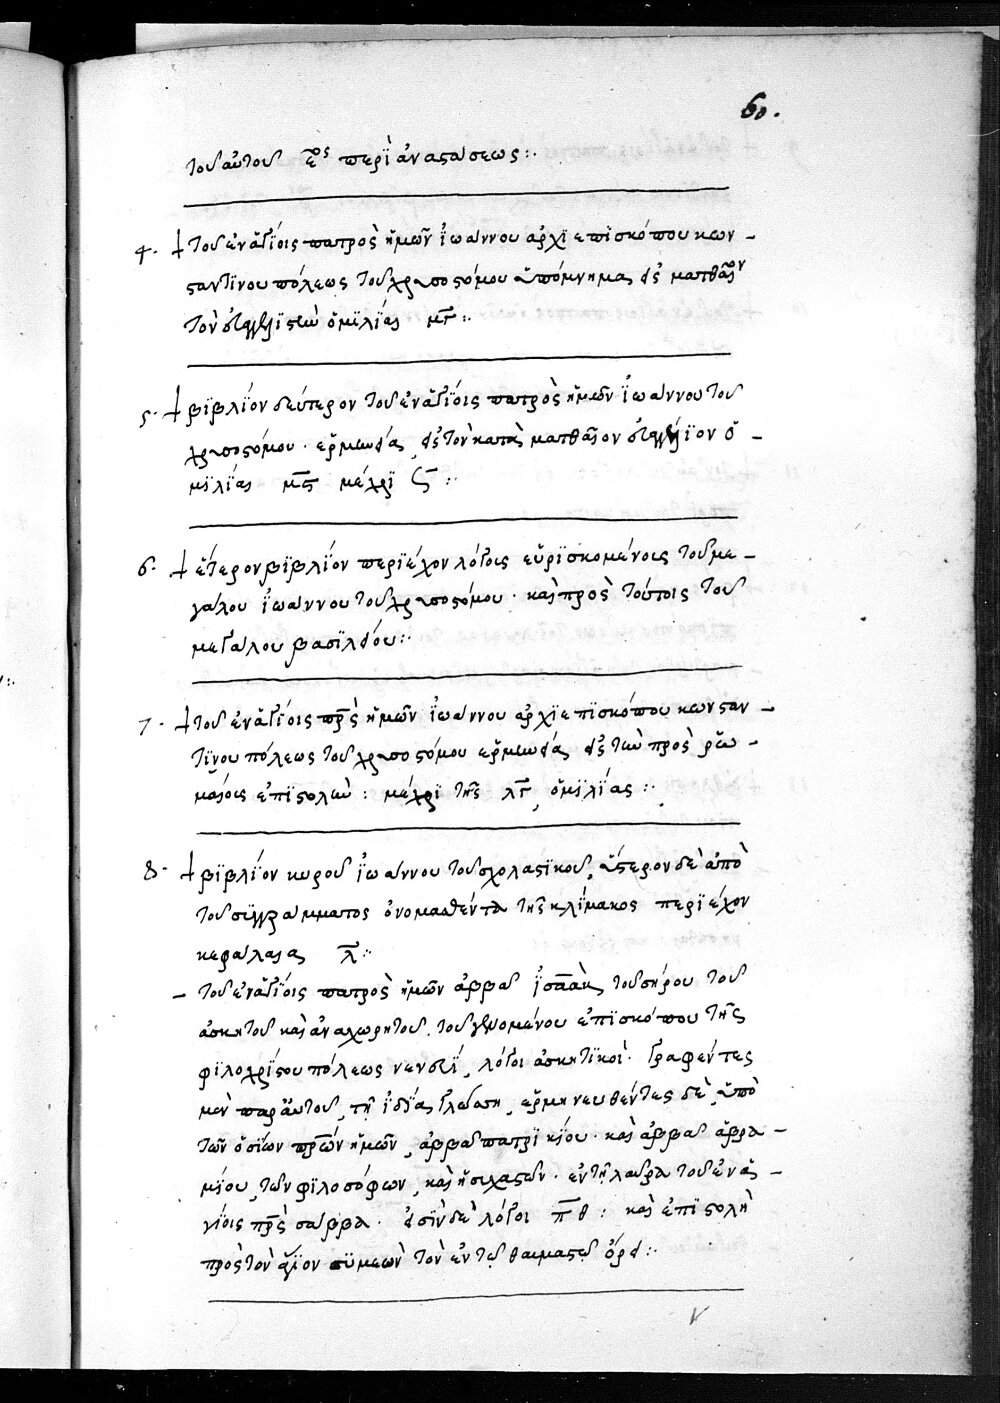 60.
τοῦ αὐτοῦ ἕτερος περὶ ἀναστάσεως:·
4· + τοῦ ἐν ἁγίοις πατρὸς ἡμῶν ἰωάννου ἀρχιεπισκόπου κων-
σταντϊνουπόλεως τοῦ χρυσοστόμου ὑπόμνημα εἰς ματθαῖον
τὸν εὐαγγελιστὴν ὁμιλίας μ̅γ̅:·
5· + βϊβλίον δεύτερον τοῦ ἐν ἁγίοις πατρὸς ἡμῶν ἰωάννου τοῦ
χρυσοστόμου· ἑρμηνεία, εἰς τὸν κατὰ ματθαῖον εὐαγγέλϊον ὁ-
μιλίας μ̅ϛ̅ μέχρϊ ϟ̅:·
6· + ἕτερον βϊβλίον περϊέχον λόγοις εὑρϊσκομένοις τοῦ με-
γάλου ἰωάννου τοῦ χρυσοστόμου· καὶ πρὸς τούτοις τοῦ
μεγάλου βασϊλείου:·
7· + τοῦ ἐν ἁγίοις πρς ἡμῶν ἰωάννου ἀρχιεπϊσκόπου κωνσταν-
τϊνουπόλεως τοῦ χρυσοστόμου ἑρμηνεία εἰς τὴν πρὸς ῥω-
μαίοις ἐπϊστολὴν: μέχρϊ τῆς λ̅γ̅, ὁμιλίας:·
8· + βϊβλίον κυροῦ ἰωάννου τοῦ σχολαστϊκοῦ, ὕστερον δὲ ἀπὸ
τοῦ συγγράμματος ὀνομασθέντα τῆς κλίμακος περϊέχον
κεφάλαια λ̅:·
- τοῦ ἐν ἁγίοις πατρὸς ἡμῶν ἀββᾶ ἰσαὰκ τοῦ σύρου τοῦ
ἀσκητοῦ καὶ ἀναχωρητοῦ, τοῦ γενομένου ἐπϊσκόπου τῆς
φϊλοχρίστου πόλεως νενευΐ, λόγοι ἀσκητϊκοὶ· γραφέντες
μὲν παρ' αὐτοῦ, τῇ ἰδίᾳ γλώσσῃ, ἑρμηνευθέντες δὲ, ὑπὸ
τῶν ὁσίων πρων ἡμῶν, ἀββᾶ πατρϊκίου· καὶ ἀββᾶ ἀβρα-
μίου, τῶν φϊλοσόφων, καὶ ἡσυχαστῶν· ἐν τῇ λαύρα τοῦ ἐν ἁ-
γίοις πρς σάββα· εἰσὶν δὲ λόγοι π̅θ̅: καὶ ἐπϊστολὴ
πρὸς τὸν ἅγϊον συμεὼν τὸν ἐν τῷ θαυμαστῷ ὄρει:·